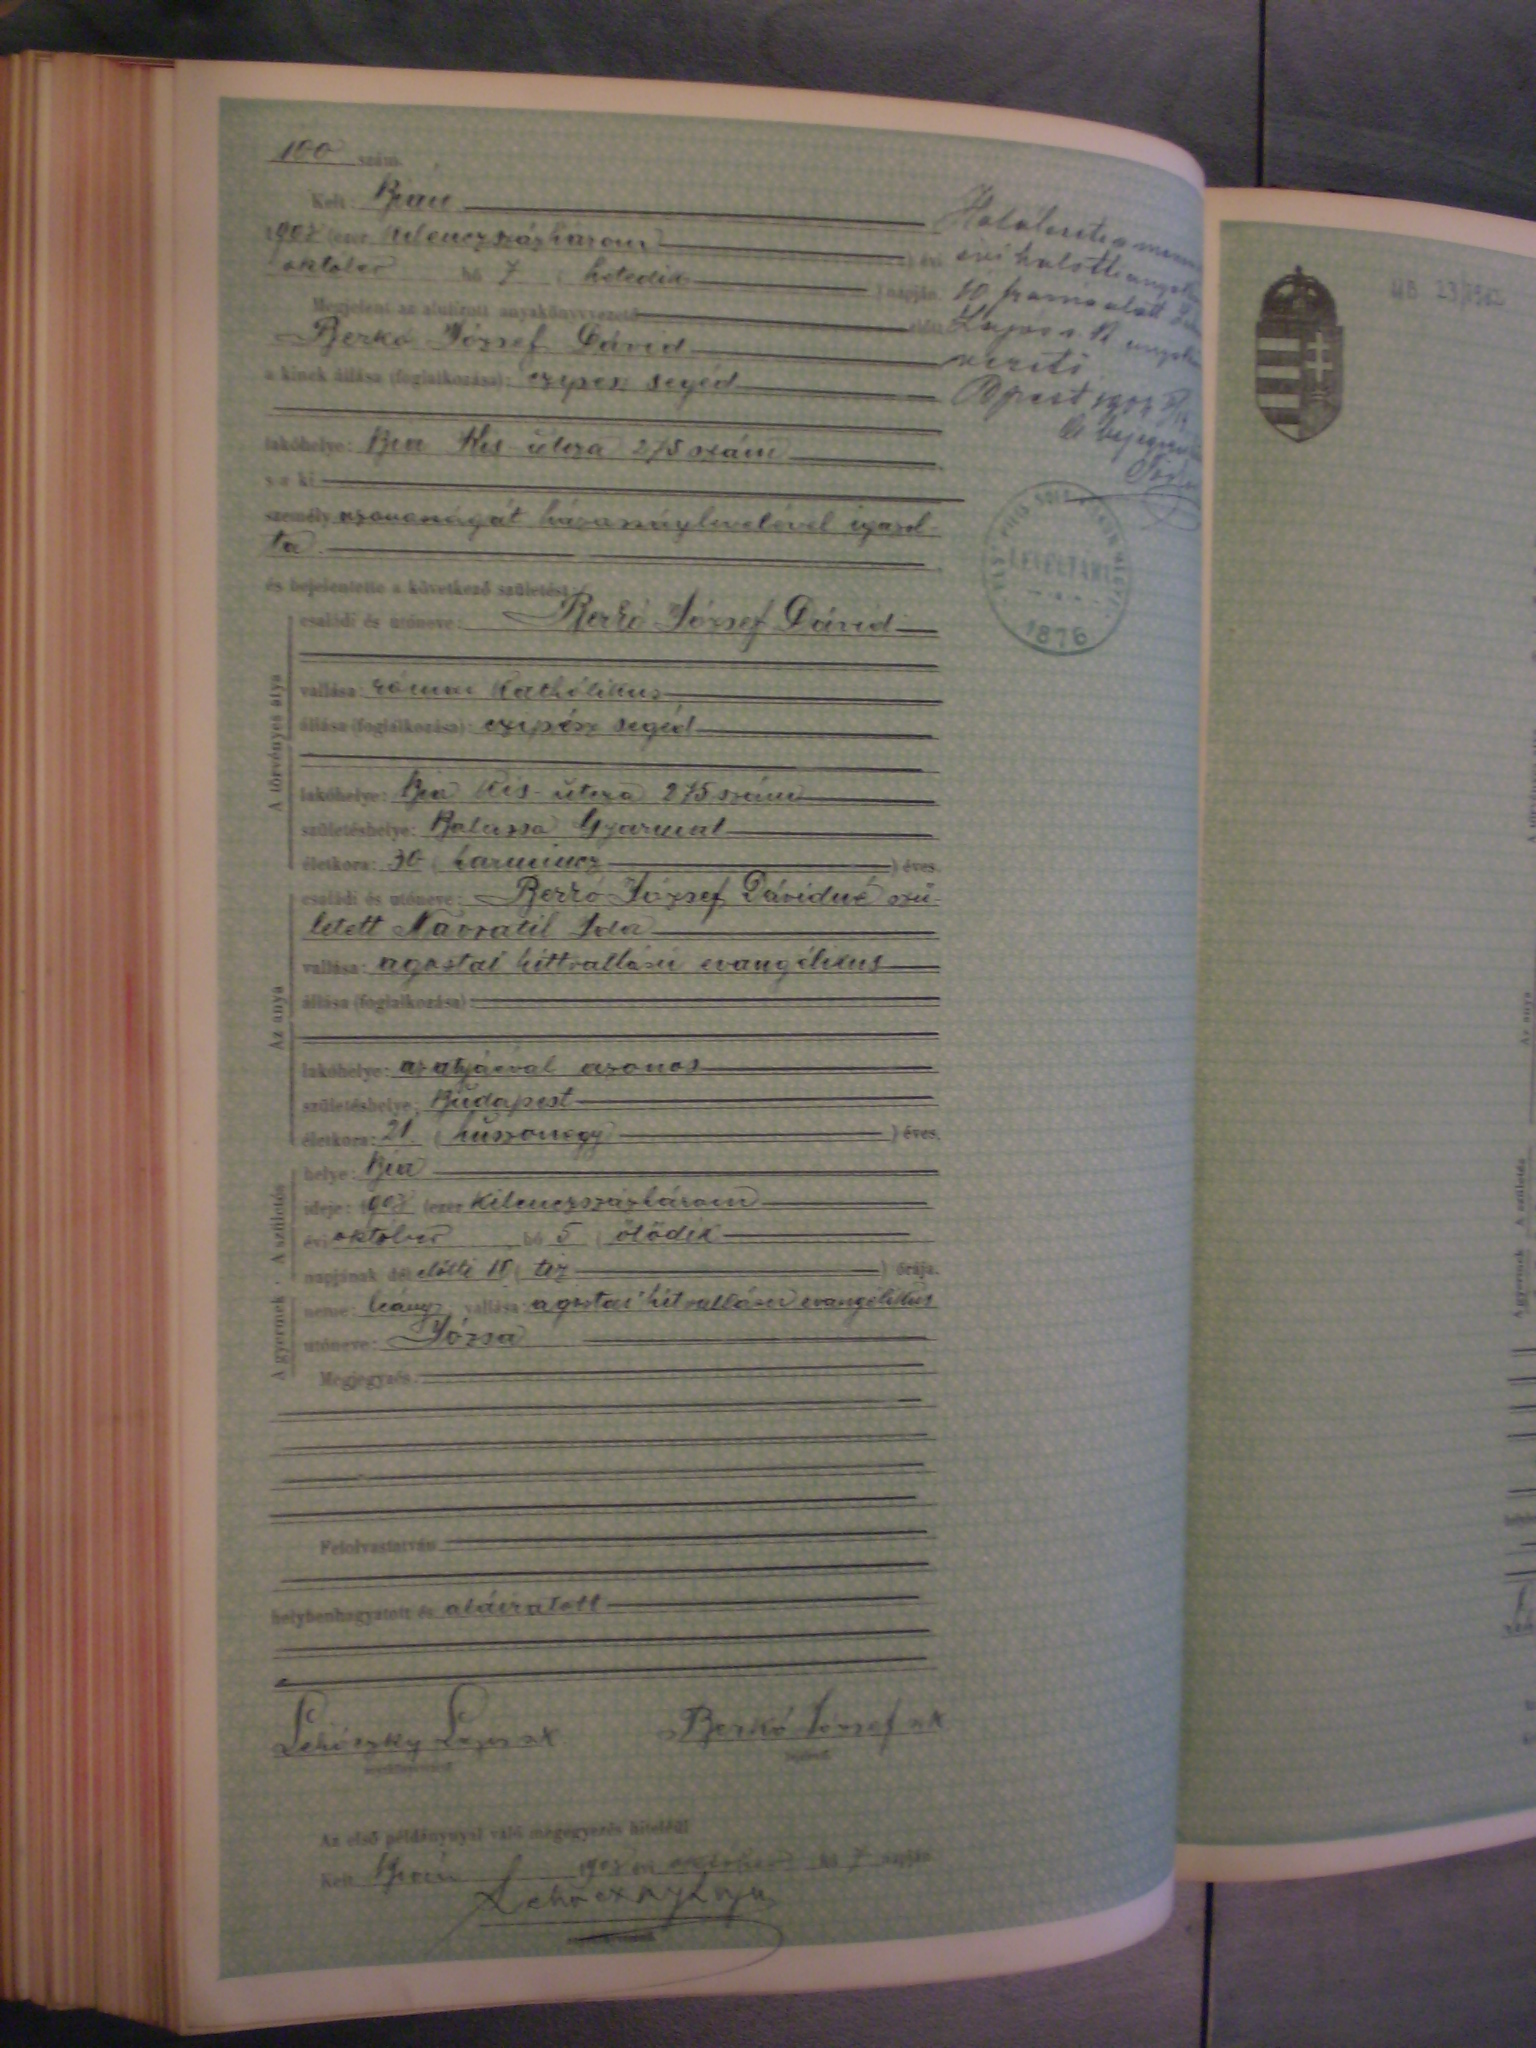 100 szám.
Kelt: Bián
1903 (ezer kilenczszázhárom) évi
október hó 7 (hetedik) napján.
Megjelent az alulirott anyakönyvvezető előtt
Berkó József Dávid
a kinek állása (foglalkozása): czipész segéd
lakóhelye: Bia Kis-útcza 275 szám
s a ki
személy azonosságát házasságlevelével igazol-
ta.
és bejelentette a következő születést:
A törvényes atya
családi és utóneve: Berkó József Dávid
vallása: római kathólikus
állása (foglalkozása): czipész segéd
lakóhelye: Bia Kis-útcza 275 szám
születéshelye: Balassa Gyarmat
életkora: 30 (harmincz) éves.
Az anya
családi és utóneve: Berkó József Dávidné szü-
letett Navratil
vallása: agostai hittvallású evangélikus
állása (foglalkozása):
lakóhelye: az atyáéval azonos
születéshelye: Budapest
életkora: 21 (huszonegy) éves.
A születés
helye: Bia
ideje: 1903 (ezer kilenczszázhárom
évi október hó 5 (ötödik
napjának dél előtti 10 (tíz) órája.
A gyermek
neme: leány; vallása: agostai hitvallású evangélikus
utóneve: Józsa
Megjegyzés:
Felolvastatván
helybenhagyatott és aláiratott
Lehóczky Lajos sk
Berkó József sk
anyakönyvvezető
bejelentő
Az első példánynyal való megegyezés hiteléül
Kelt Bián 1903 évi október hó 7 napján
Lehóczky Lajos
Halálesete a
évi halotti
10 folyószám alatt
Lajos s. k.
vezető
Bpest 1903
A bejegyzés
LEVÉLTÁRA
1876